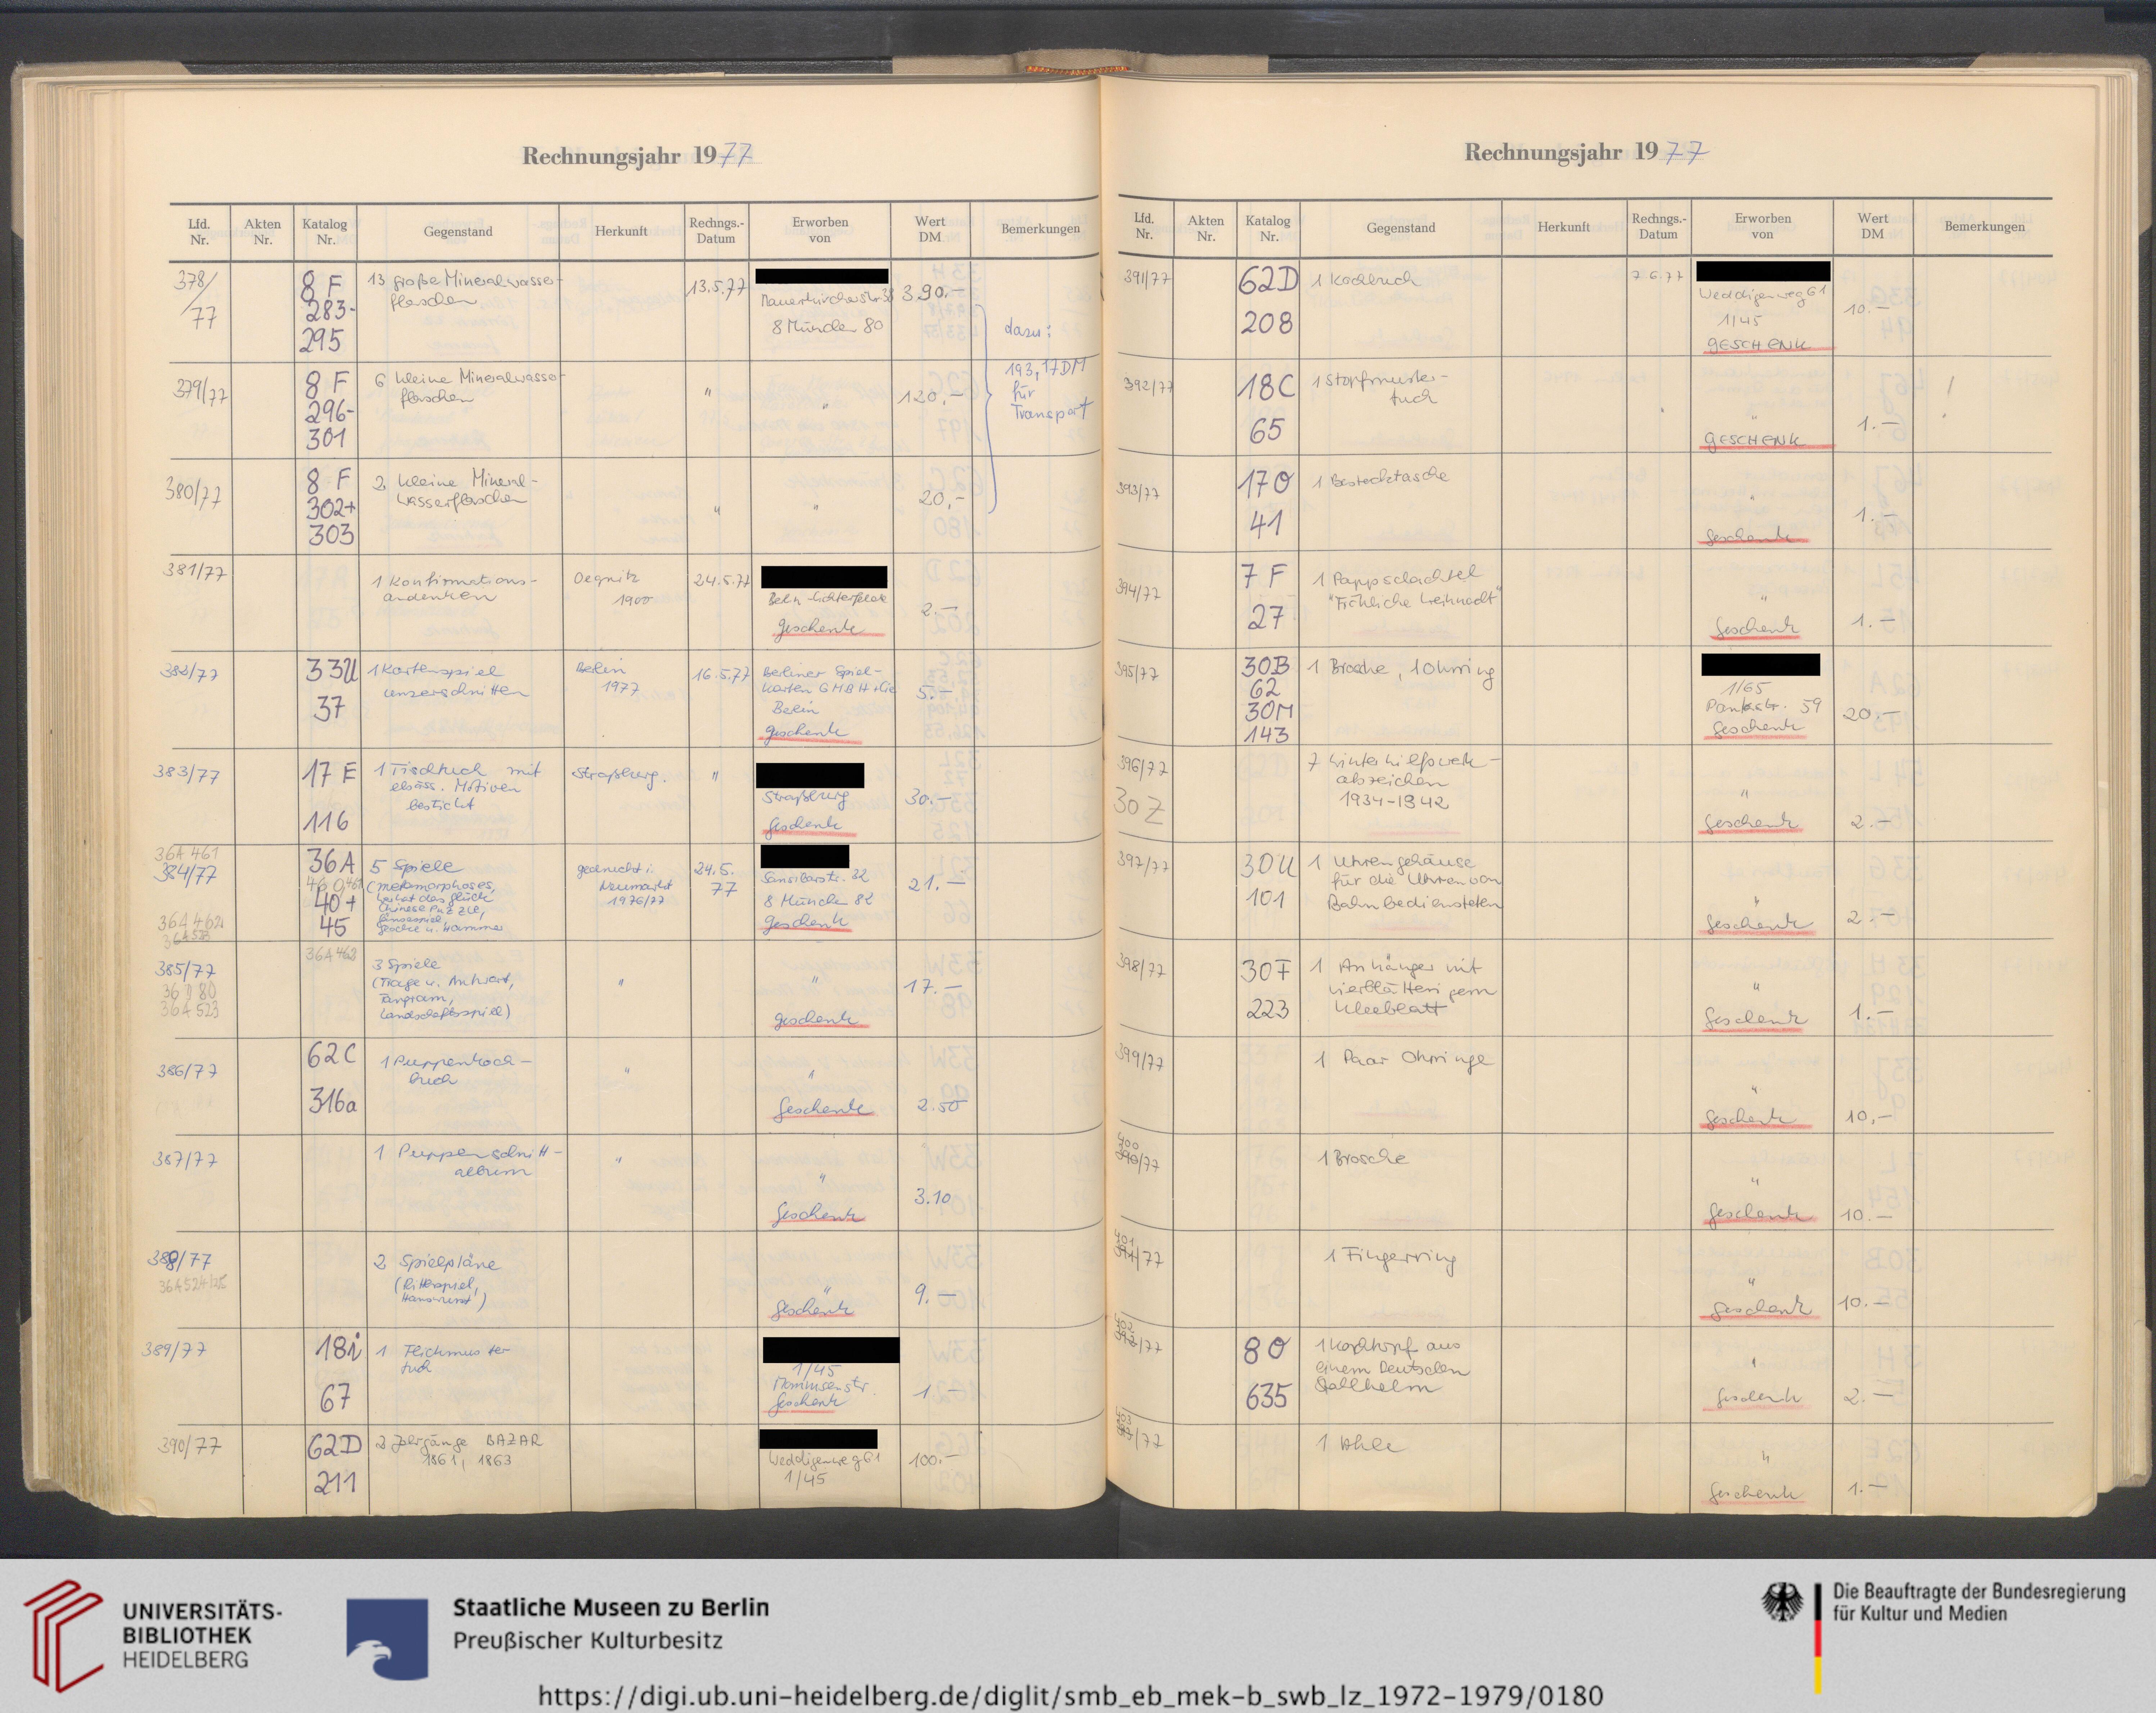 Rechnungsjahr 1977
Lfd. Nr.
Akten Nr.
Katalog Nr.
Gegenstand
Herkunft
Rechngs.-Datum
Erworben von
Wert DM
Bemerkungen
378/77
8 F
283-
295
13 große Mineralwasser-
flaschen
13.5.77
Mauerkircherstr. 38
8 München 80
390.-
dazu:
193,17 DM
für
Transport
379/77
8 F
296-
301
6 kleine Mineralwasser-
flaschen
"
"
120,-
380/77
8 F
302+
303
2 kleine Mineral-
wasserflaschen
"
"
20,-
381/77
1 Konfirmations-
andenken
Oegnitz
1900
24.5.77
Berlin-Lichterfelde
Geschenk
2.-
382/77
33U
37
1 Kartenspiel
unzerschnitten
Berlin
1977
16.5.77
Berliner Spiel-
karten GMBH + Cie
Berlin
Geschenk
5.-
383/77
17 E
116
1 Tischtuch mit
elsäss. Motiven
bestickt
Straßburg.
"
Straßburg
Geschenk
30.-
36A 461
384/77
36A 462
36A 523
36A
40+
45
5 Spiele
(Metamorphoses,
Chinese Puzzle,
Glocke u. Hammer
gedruckt i.
Neumarkt
1976/77
24.5.
77
Sansibarstr. 32
8 München 82
Geschenk
21.-
385/77
36A 523
36A 462
3 Spiele
(Frage u. Antwort,
Tangram,
Landschaftsspiel)
"
"
Geschenk
17.-
386/77
62C
316a
1 Puppenkoch-
buch
"
"
Geschenk
2.50
387/77
1 Puppenschnitt-
album
"
"
Geschenk
3.10
388/77
36A 524/25
2 Spielpläne
(Ritterspiel,
Hanswurst)
"
Geschenk
9.-
389/77
18i
67
1 Flickmuster
tuch
1/45
Mommsenstr.
Geschenk
1.-
390/77
62D
211
2 Jahrgänge BAZAR
1861, 1863
Weddigenweg 61
1/45
100.-
Rechnungsjahr 1977
Lfd. Nr.
Akten Nr.
Katalog Nr.
Gegenstand
Herkunft
Rechngs.-Datum
Erworben von
Wert DM
Bemerkungen
391/77
62D
208
1 Kochbuch
7.6.77
Weddigenweg 61
1/45
GESCHENK
10.-
392/77
18C
65
1 Stopfmuster-
tuch
"
GESCHENK
1.-
393/77
17O
41
1 Bestecktasche
"
Geschenk
1.-
394/77
7 F
27
1 Pappschachtel
"Fröhliche Weihnacht"
"
Geschenk
1.-
395/77
30B
62
30M
143
1 Brosche, 1 Ohrring
1/65
Pankstr. 59
Geschenk
20.-
396/77
30Z
7 Winterhilfswerk-
abzeichen
1934-1942
"
Geschenk
2.-
397/77
30U
101
1 Uhrengehäuse
für die Uhren von
Bahnbediensteten
"
Geschenk
2.-
398/77
30F
223
1 Anhänger mit
vierblättrigem
Kleeblatt
"
Geschenk
1.-
399/77
1 Paar Ohrringe
"
Geschenk
10,-
400
390/77
1 Brosche
"
Geschenk
10.-
401
391/77
1 Fingerring
"
Geschenk
10.-
402
392/77
8O
635
1 Kochtopf aus
einem Deutschen
Stahlhelm
"
Geschenk
2.-
403
393/77
1 Ahle
"
Geschenk
1.-
UNIVERSITÄTS-
BIBLIOTHEK
HEIDELBERG
Staatliche Museen zu Berlin
Preußischer Kulturbesitz
Die Beauftragte der Bundesregierung
für Kultur und Medien
https://digi.ub.uni-heidelberg.de/diglit/smb_eb_mek-b_swb_lz_1972-1979/0180